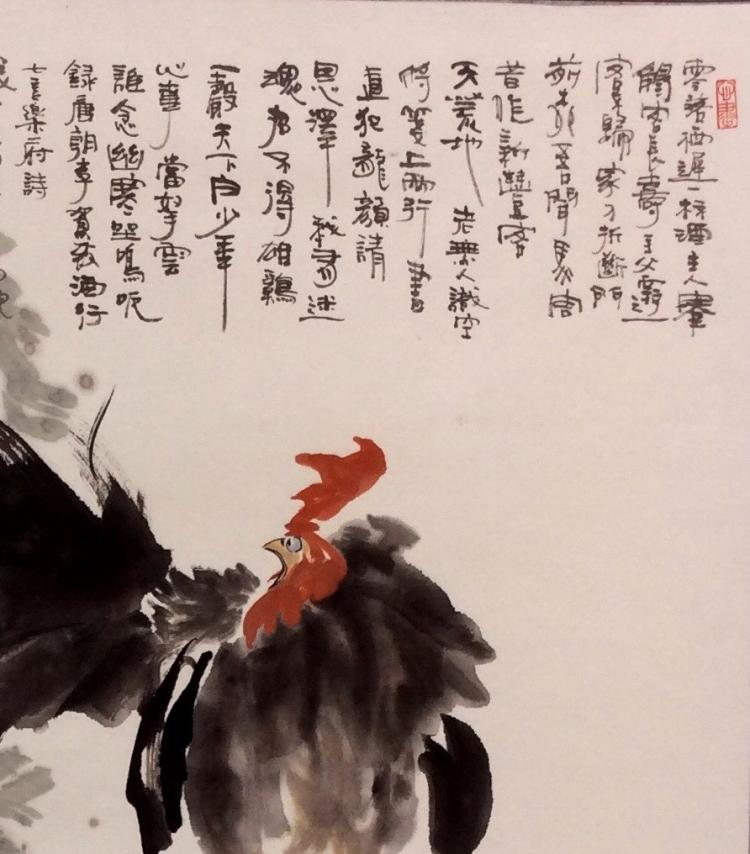 零落栖遲一杯酒主人奉
觴客長壽主父西遊
歸家人折斷門
前柳吾聞馬周
昔作新豐客
天荒地老無人識空
將箋上兩行書
直犯龍顏請
恩澤我有迷
魂招不得雄鷄
一聲天下白少年
心事當拏雲
誰念幽寒坐嗚呃
錄唐朝李賀致酒行
七言樂府詩